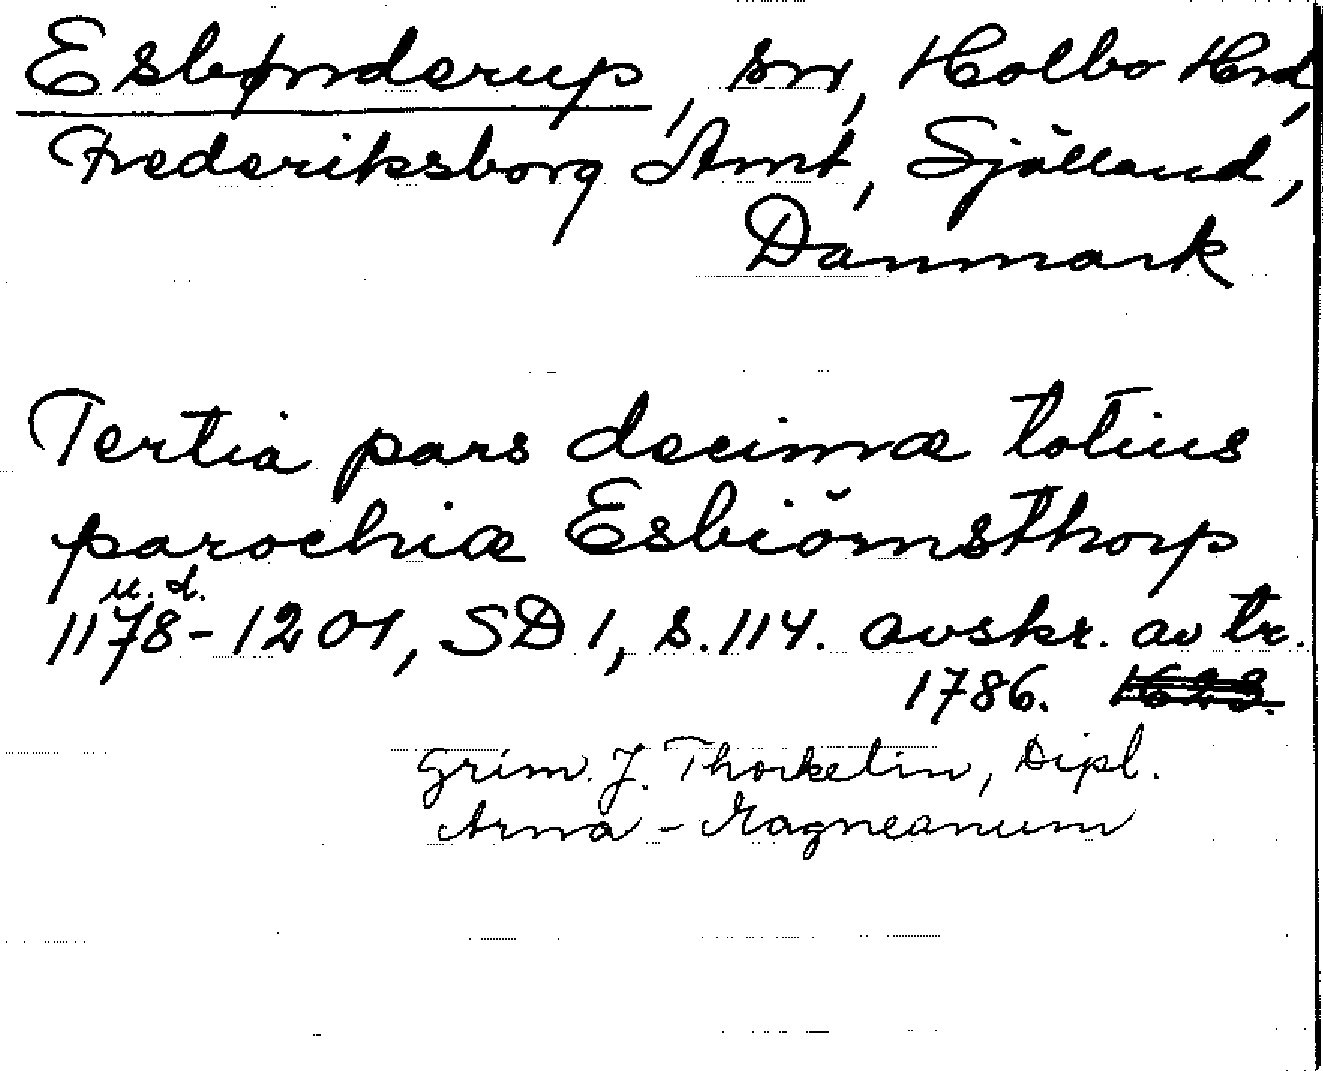 Esbønderup, sn, Holbo Hrd,
Frederiksborg Amt, Sjælland,
Danmark
Tertia pars decimæ totius
parochiæ Esbiörnsthorp
u.d.
1178-1201, SD 1, s. 114. avskr. av tr.
1786. 1623.
Grim. J. Thorkelin, Dipl.
Arna-Magneanum